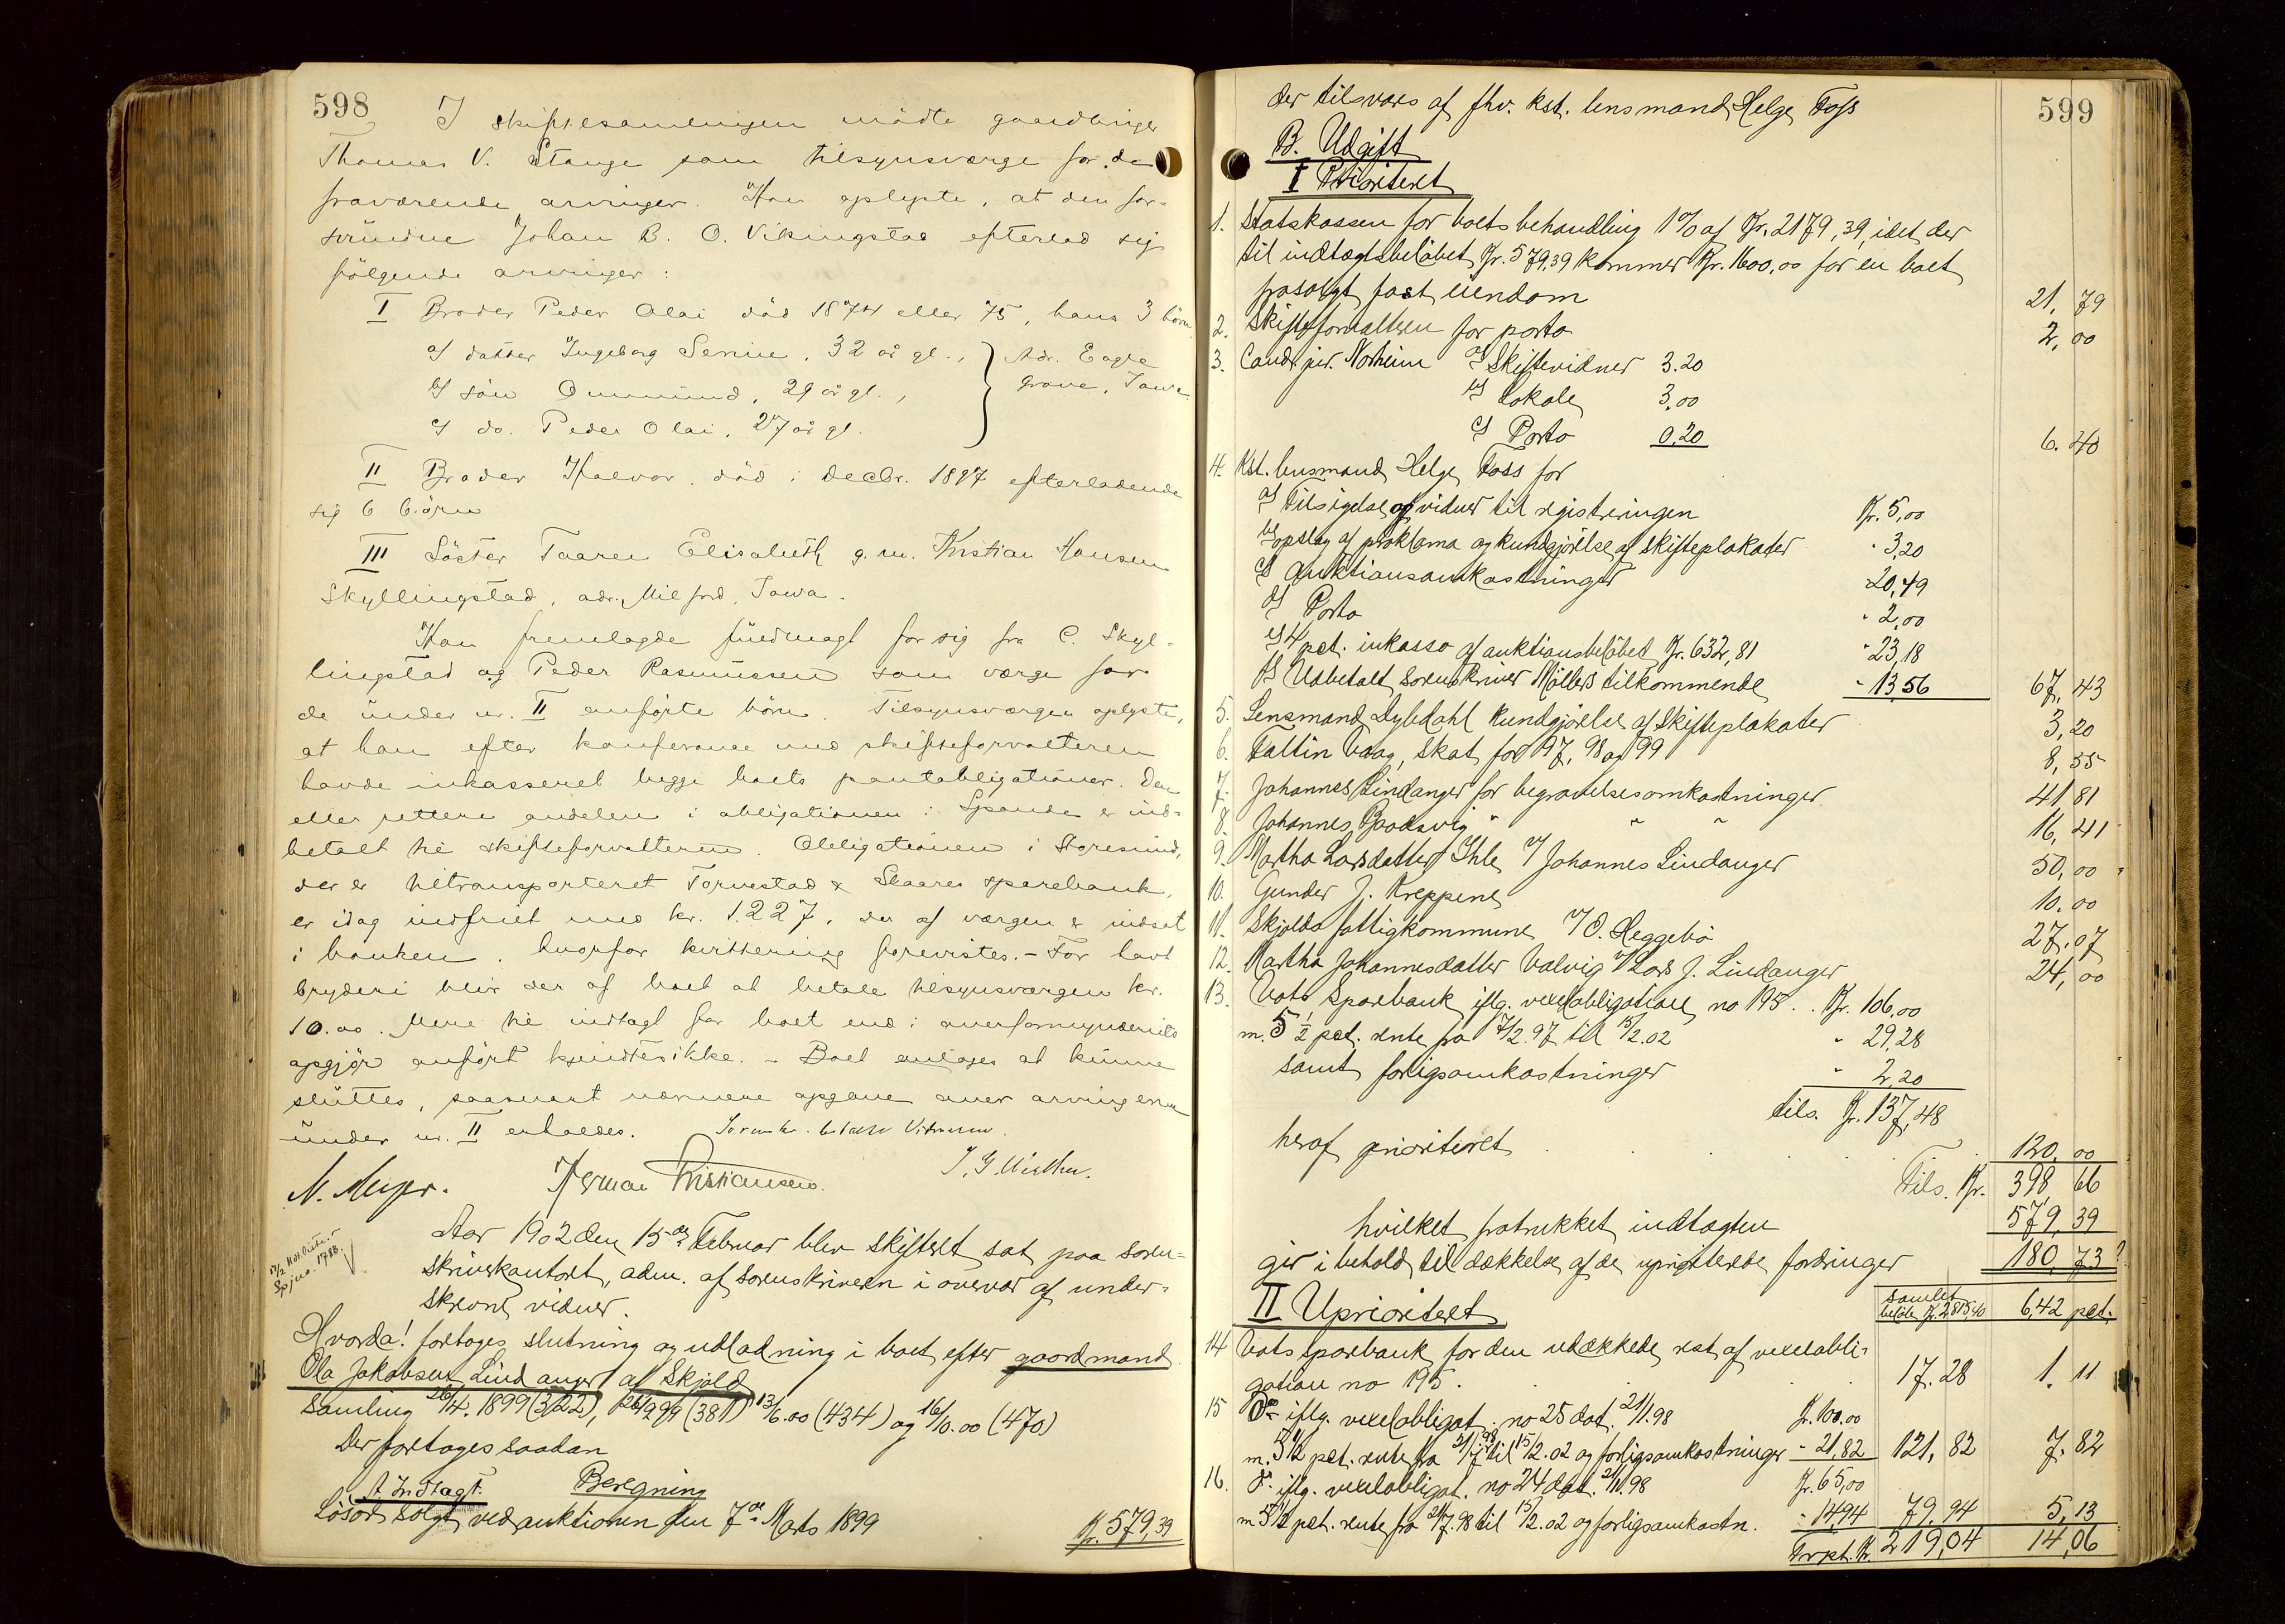 598
I skiftesamlingen mödte gaardbruger
Thomas V. Stange som tilsynsværge for de
fraværende arvinger. Han oplyste, at den for-
svundne Johan B. O. Vikingstad efterlod sig
fölgende arvinger:
I Broder Peder Olai död 1874 eller 75, hans 3 börn
a/ datter Ingeborg Serine, 32 år gl., } Adr. Eagle
b/ sön Ommund, 29 år gl., Grove, Iowa
c/ do. Peder Olai, 27 år gl.
II Broder Halvor, död i decbr. 1897 efterladende
sig 6 börn
III Söster Taaren Elisabeth g. m. Kristian Hansen
Skyllingstad, adr. Milford, Iowa.
Han fremlagde fuldmagt for sig fra C. Skyl-
lingstad og Peder Rasmussen som værge for
de under nr. II anförte börn. Tilsynsværgen oplyste,
at han efter konferance med skifteforvalteren
havde inkasseret begge boets pantobligationer. Den
eller rettere andelen i obligationen i Spande er ind-
betalt til skifteforvalteren. Obligationen i Storesund,
der er tiltransporteret Torvestad & Skaare sparebank,
er idag indfriet med kr. 1.227, der af værgen er indsat
i banken, hvorfor kvittering forevistes. - For havt
bryderi blir der af boet at betale tilsynsværgen kr.
10.00. Mere til indtægt for boet end i overformynderiets
opgjör anfört kjendtes ikke. - Boet antages at kunne
sluttes, saasnart nærmere opgave over arvingerne
under nr. II erholdes.
N. Meyer. Herman Kristiansen.
Aar 1902 den 15de Februar blev skifteret sat paa soren-
skriverkontoret, adm. af sorenskriveren i overvær af under-
skrevne vidner.
Hvorda! foretoges slutning og udlodning i boet efter gaardmand
Ola Jakobsen Lindanger af Skjold
Samling 26/4. 1899 (322), 26/9 99 (381) 13/6.00 (434) og 16/10.00 (470)
Der foretoges saadan
Beregning
A. Indtægt.
Lösöre solgt ved auktionen den 7de Marts 1899 Kr. 579,39
599
der tilsvares af fhv. kst. lensmand Helge Foss
B. Udgift
I Prioriteret
1. Statskassen for boets behandling 1% af Kr. 2179,39, idet der
til indtægtsbelöbet Kr. 579,39 kommer Kr. 1600,00 for en boet
frasolgt fast eiendom 21,79
2. Skifteforvalteren for porto 2,00
3. Cand. jur. Norheim a/ Skiftevidner 3.20
b/ Lokale 3,00
c/ Porto 0.20 6.40
4. Kst. lensmand Helge Foss for
a/ Tilsigelse af vidner til registreringen Kr. 5,00
b/ opslag af proklama og kundgjörelse af skifteplakater " 3,20
c/ Auktionsomkostninger 20,49
d/ Porto " 2,00
e/ 4 pct. inkasso af auktionsbelöbet Kr. 632,81 " 23,18
f/ Udbetalt sorenskriver Möllers tilkommende " 13,56 67,43
5. Lensmand Dybdahl kundgjörelse af skifteplakater 3,20
6. Faltin Vaag, skat for 97, 98 og 99 8,55
7. Johannes Lindanger for begravelsesomkostninger 41,81
8. Johannes Brodsvig " " " 16,41
9. Martha Larsdatter Ihle v/ Johannes Lindanger 50,00
10. Gunder J. Kreppene 10.00
11. Skjolds fattigkommune v/ O. Heggebö 27.07
12. Martha Johannesdatter Valvig v/ Lars J. Lindanger 24,00
13. Vats Sparebank iflg. vexelobligation no 195 . . Kr. 106,00
m. 5 1/2 pct. rente fra 7/2.97 til 15/2.02 " 29,28
samt forligsomkostninger " 2,20
tils. Kr. 137,48
heraf prioriteret . . . . . 120,00
Tils. Kr. 398 66
hvilket fratrukket indtægten 579,39
gir i behold til dækkelse af de upriorterede fordringer 180,73?
II Uprioriteret samlet belöb Kr. 2815,40 6,42 pct.
14 Vats sparebank for den udækkede rest af vexelobli-
gation no 195 . . . 17.28 1.11
15 Do iflg. vexelobligat. no 25 dat. 21/1.98 Kr. 100.00
m. 5 1/2 pct. rente fra 21/7 98 til 15/2.02 og forligsomkostninger " 21,82 121,82 7.82
16. Do iflg. vexelobligat. no 24 dat. 21/1.98 Kr. 65,00
m 5 1/2 pct. rente fra 21/7.98 til 15/2.02 og forligsomkostn. " 14,94 79,94 5,13
Trspt. Kr. 219,04 14,06